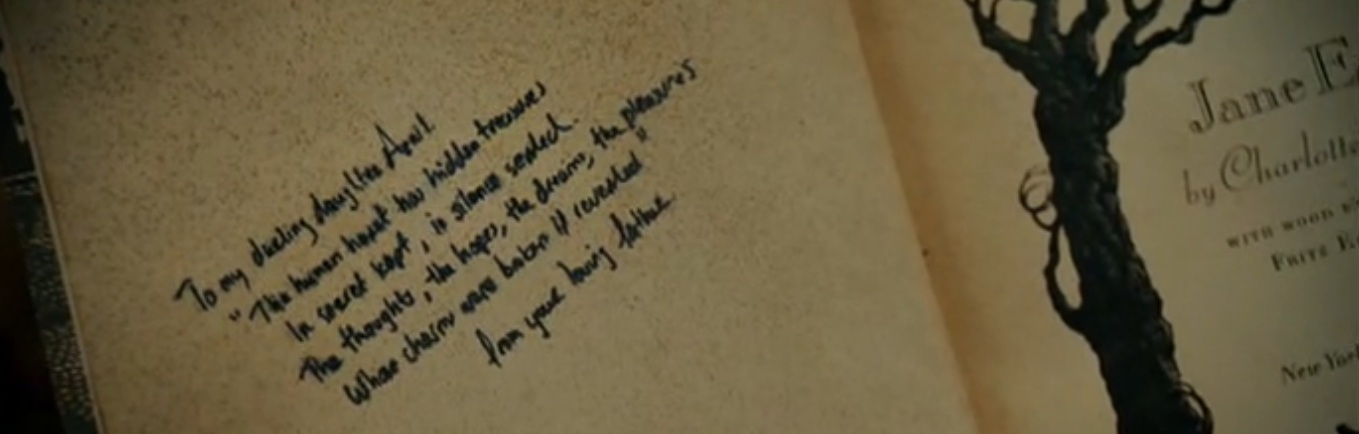 To my darling daughter April.
"The human heart has hidden treasures
In secret kept, in silence sealed.
The thoughts, the hopes, the dreams, the pleasures
Whose charms were broken if revealed"
from your loving father
Jane E
by Charlotte
WITH WOOD
FRITZ E
New York